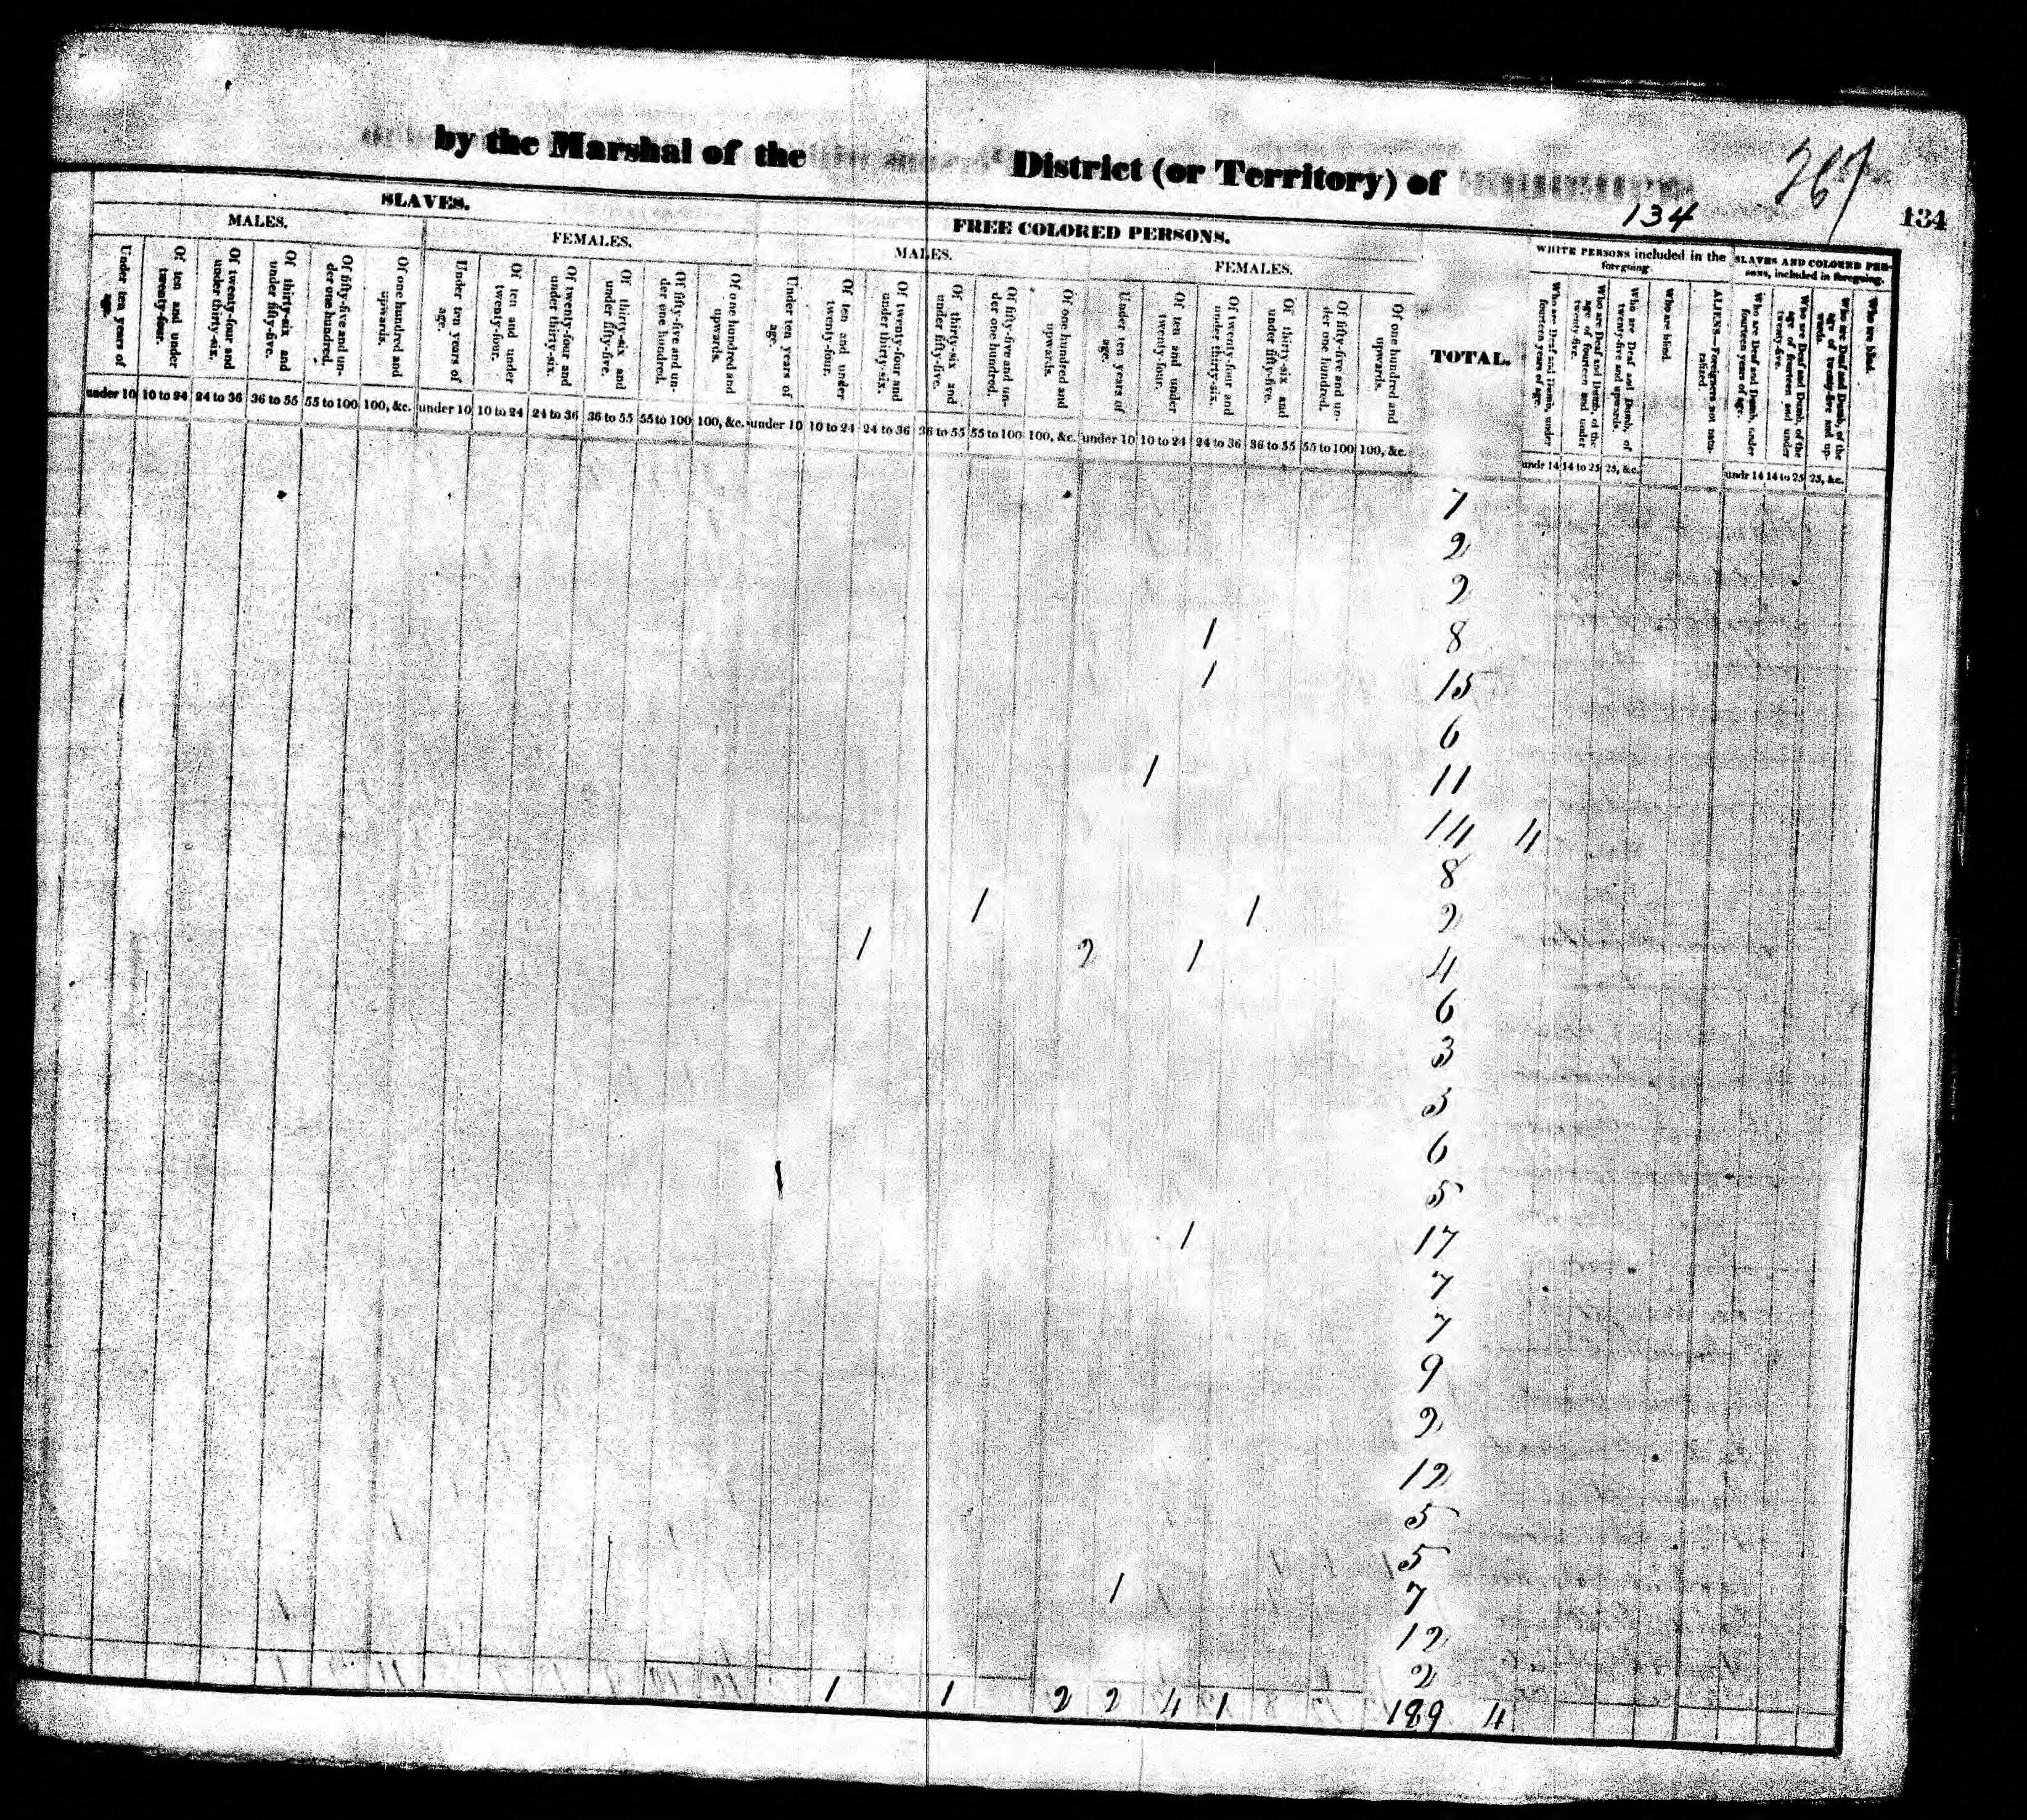 by the Marshal of the District (or Territory) of
267
134
134
SLAVES.
FREE COLORED PERSONS.
WHITE PERSONS included in the foregoing.
SLAVES AND COLORED PERSONS, included in foregoing.
MALES.
FEMALES.
MALES.
FEMALES.
Under ten years of age.
Of ten and under twenty-four.
Of twenty-four and under thirty-six.
Of thirty-six and under fifty-five.
Of fifty-five and under one hundred.
Of one hundred and upwards.
Under ten years of age.
Of ten and under twenty-four.
Of twenty-four and under thirty-six.
Of thirty-six and under fifty-five.
Of fifty-five and under one hundred.
Of one hundred and upwards.
Under ten years of age.
Of ten and under twenty-four.
Of twenty-four and under thirty-six.
Of thirty-six and under fifty-five.
Of fifty-five and under one hundred.
Of one hundred and upwards.
Under ten years of age.
Of ten and under twenty-four.
Of twenty-four and under thirty-six.
Of thirty-six and under fifty-five.
Of fifty-five and under one hundred.
Of one hundred and upwards.
TOTAL.
Who are Deaf and Dumb, under fourteen years of age.
Who are Deaf and Dumb, of the age of fourteen and under twenty-five.
Who are Deaf and Dumb, of twenty-five and upwards.
Who are blind.
ALIENS—Foreigners not naturalized.
Who are Deaf and Dumb, under fourteen years of age.
Who are Deaf and Dumb, of the age of fourteen and under twenty-five.
Who are Deaf and Dumb, of the age of twenty-five and upwards.
Who are blind.
under 10 10 to 24 24 to 36 36 to 55 55 to 100 100, &c. under 10 10 to 24 24 to 36 36 to 55 55 to 100 100, &c. under 10 10 to 24 24 to 36 36 to 55 55 to 100 100, &c. under 10 10 to 24 24 to 36 36 to 55 55 to 100 100, &c.
undr 14 14 to 25 25, &c. undr 14 14 to 25 25, &c.
7
2
2
1 8
1 15
6
1 11
14 4
8
1 1 2
1 2 1 4
6
3
3
6
1 5
1 17
7
7
9
2
12
5
5
1 7
12
2
1 1 2 2 4 1 189 4